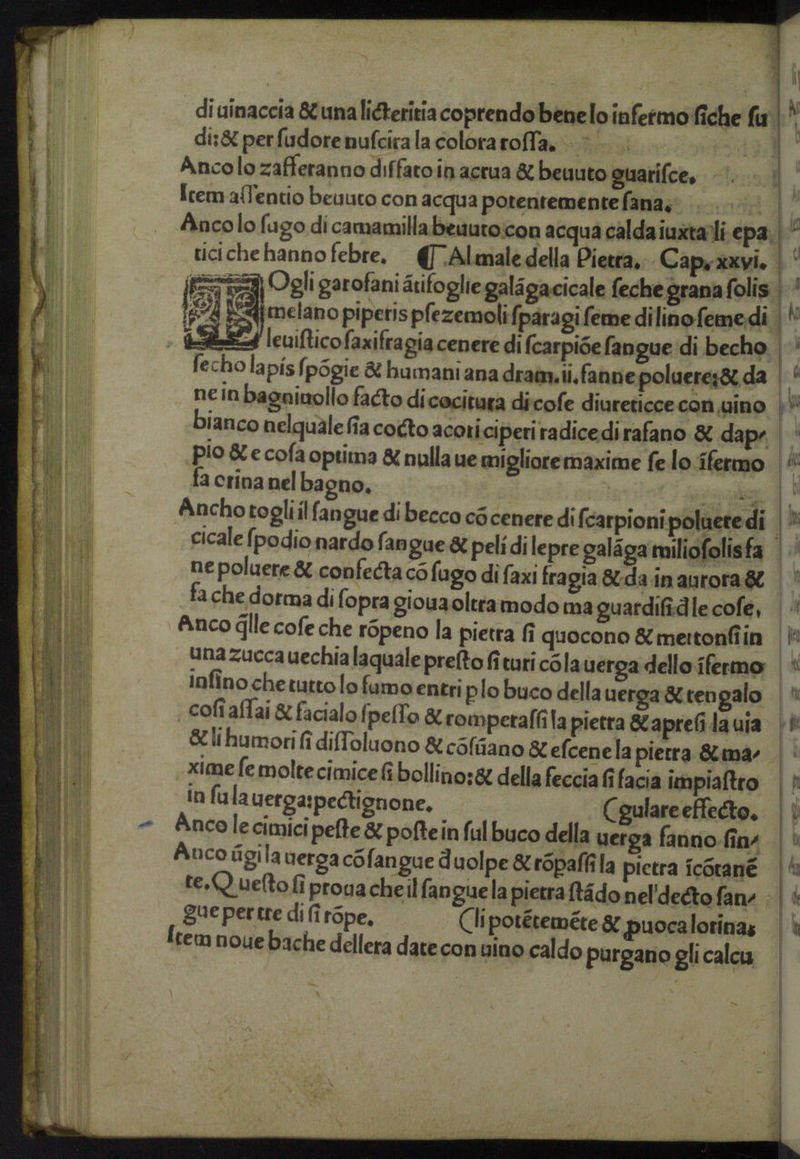 di uinaccia & una licteritia coprendo bene lo infermo ſiche ſu
di:& per ſudore nuſcira la colora roſſa.
Anco lo zafferanno diſſato in acrua & beuuto guariſce,
Item aſſentio beuuto con acqua potentemente ſana,
Anco lo ſugo di camamilla beuuto con acqua calda iuxta li epa
tici che hanno febre. ¶ Al male della Pietra. Cap. xxvi.
Ogli garofani ãtifoglie galãga cicale ſeche grana ſolis
melano piperis pſezemoli ſparagi ſeme di lino ſeme di
leuiſtico ſaxifragia cenere di ſcarpiõe ſangue di becho
ſecho lapis ſpõgie & humani ana dram.ii. fanne poluere;& da
ne in bagniuollo facto di cocitura di coſe diureticce con uino
bianco nelquale ſia cocto acori ciperi radice di rafano & dap⸗
pio & e coſa optima & nulla ue migliore maxime ſe lo ĩfermo
fa crina nel bagno.
Ancho togli il ſangue di becco cõ cenere di ſcarpioni poluere di
cicale ſpodio nardo ſangue & peli di lepre galãga miliofolis fa
ne poluere & confecta cõ ſugo di ſaxi fragia & da in aurora &
fa che dorma di ſopra gioua oltra modo ma guardiſi d le coſe,
Anco q̃lle coſe che rõpeno la pietra ſi quocono & mettonſi in
una zucca uechia laquale preſto ſi turi cõ la uerga dello ĩfermo
infino che tutto lo fumo entri p lo buco della uerga & tengalo
coſi aſſai & facialo ſpeſſo & romperaſſi la pietra & apreſi la uia
& li humori ſi diſſoluono & cõſũano & eſcene la pietra & ma⸗
xime ſe molte cimice ſi bollino:& della feccia ſi facia impiaſtro
in ſu la uerga:pectignone. (gulare effecto.
Anco le cimici peſte & poſte in ſul buco della uerga fanno ſin⸗
Anco ũgi la uerga cõ ſangue d uolpe & rõpaſſi la pietra ĩcõtanẽ
te. Queſto ſi proua che il ſangue la pietra ſtãdo nel decto ſan⸗
gue per tre di ſi rõpe. (li potẽtemẽte & ꝓuoca lorina;
Item noue bache dellera date con uino caldo purgano gli calcu